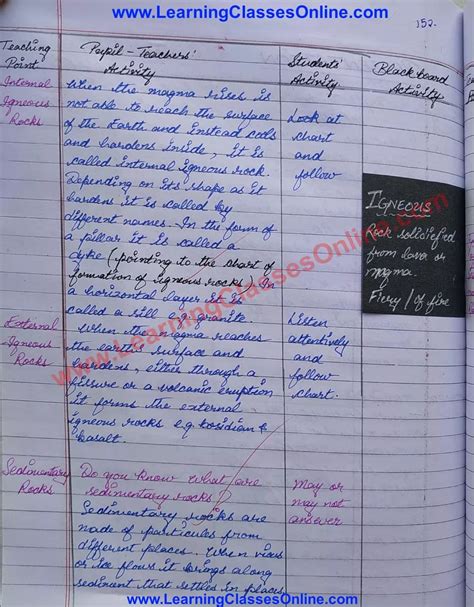 www.LearningClassesOnline.com
152.
Teaching
Point
Pupil-Teachers'
Activity
Students'
Activity
Blackboard
Activity
Internal
Igneous
Rocks
When the magma rises is
not able to reach the surface
of the Earth and instead cools
and hardens inside, it is
called internal igneous rock.
Depending on its shape as it
hardens it is called by
different names. In the form of
a pillar it is called a
dyke (pointing to the chart of
formation of igneous rocks). In
a horizontal layer it is
called a sill e.g. granite.
Look at
chart
and
follow
IGNEOUS
Rock solidified
from lava or
magma.
Fiery / of fire
www.LearningClassesOnline.com
External
Igneous
Rocks
When the magma reaches
the earth's surface and
hardens, either through a
fissure or a volcanic eruption
it forms the external
igneous rocks e.g. bosidian &
basalt.
Listen
attentively
and
follow
chart.
Sedimentary
Rocks
Do you know what are
sedimentary rocks?
Sedimentary rocks are
made of particules from
different places. When
or ice flows it brings along
sediment that settles in places
May or
may not
answer
www.LearningClassesOnline.com